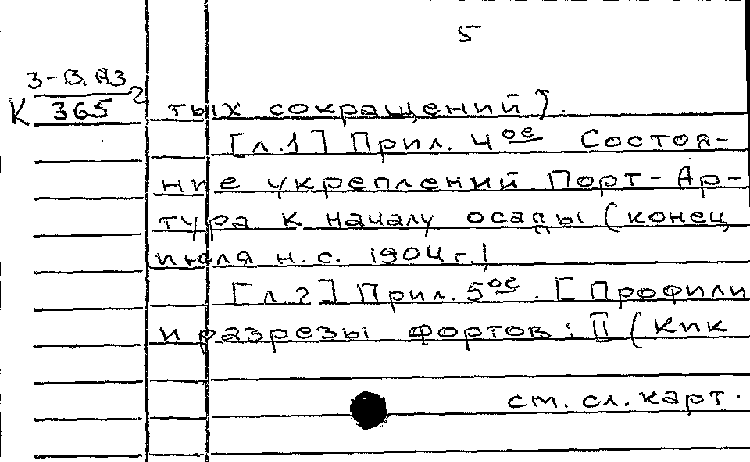 5
З-В.АЗ
К 365 2
тых сокращений].
[л.1] Прил. 4ое Состоя-
ние укреплений Порт-Ар-
тура к началу осады (конец
июля н.с. 1904г.)
[л.2] Прил. 5ое. [Профили
и разрезы фортов: II (Кик
см. сл. карт.